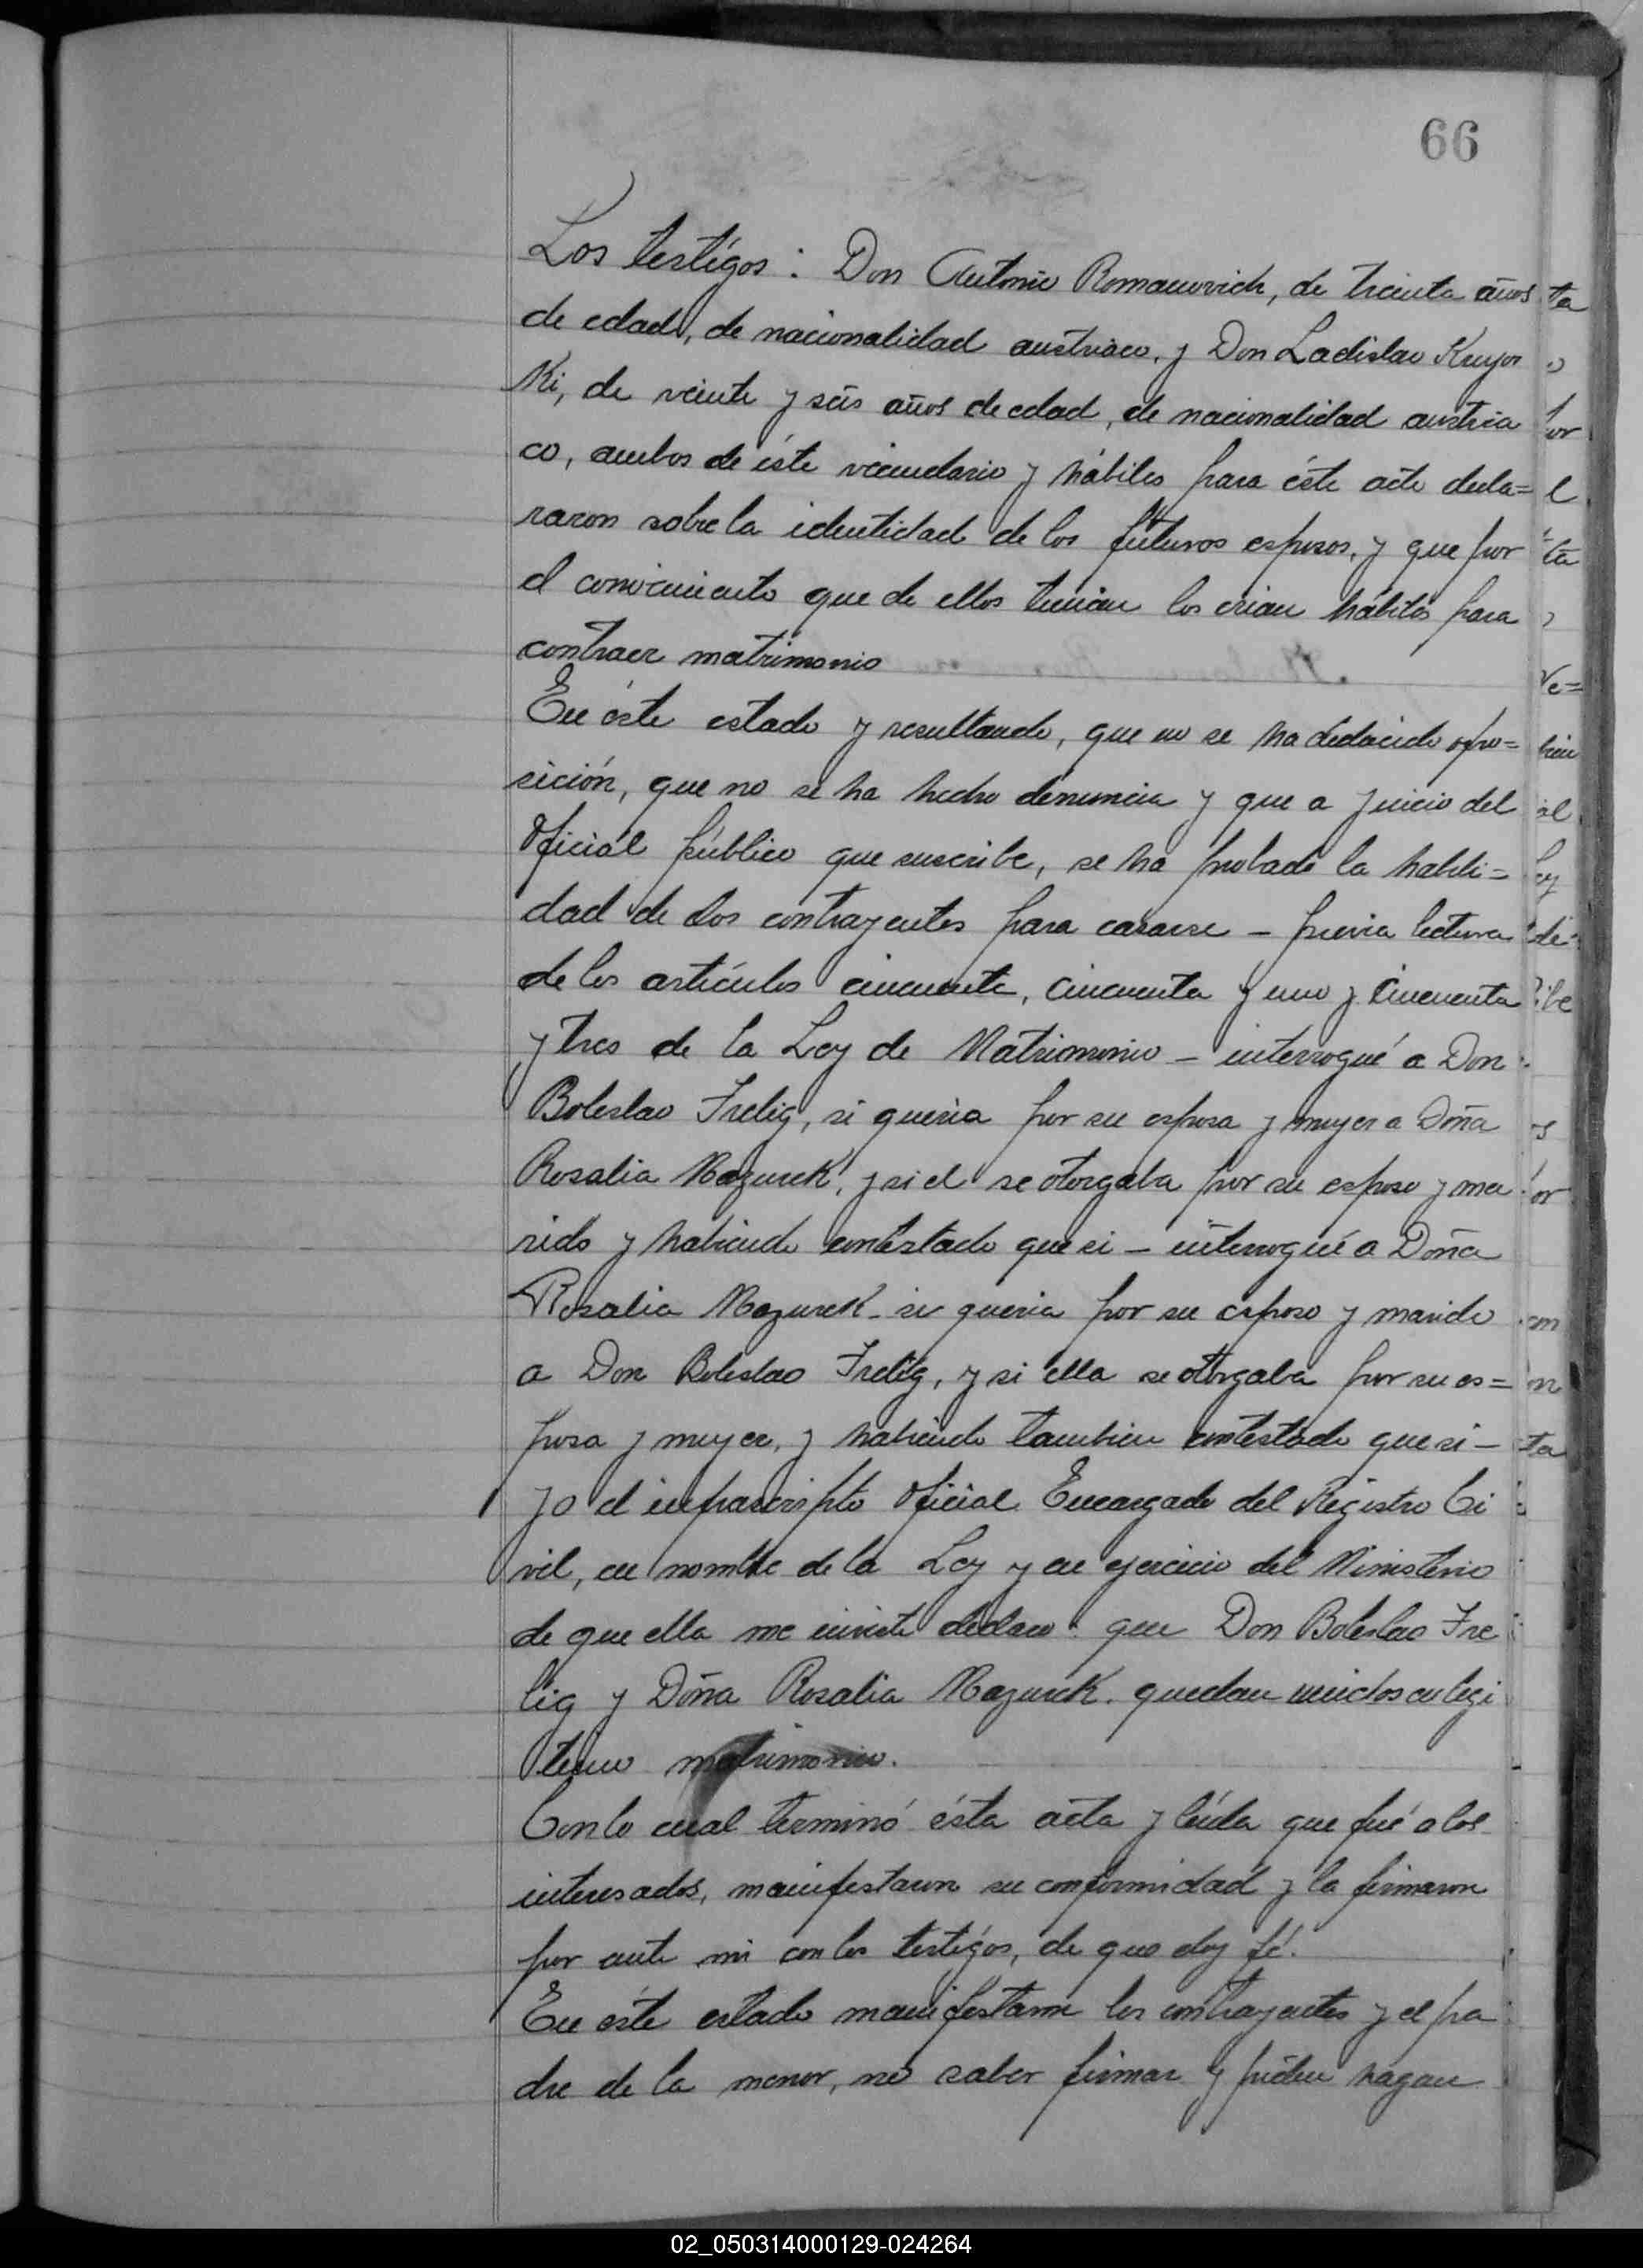 66
Los testígos : Don Antonio Romanovich, de treinta años
de edad, de nacionalidad austriaco, y Don Ladislao Kruyos
ki, de veinte y seis años de edad, de nacionalidad austria
co, ambos de éste vecindario y hábiles para éste acto decla=
raron sobre la identidad de los futuros esposos, y que por
el conocimiento que de ellos tenian los crian hábiles para
contraer matrimonio
En éste estado y resultando, que no se ha deducido opo=
sición, que no se ha hecho denuncia y que a juicio del
Oficial público que suscribe, se ha probado la habili=
dad de los contrayentes para casarse – previa lectura
de los artículos cincuenta, cincuenta y uno y cincuenta
y tres de la Ley de Matrimonio – interrogué a Don
Boleslao Frelig, si queria por su esposa y muyer a Doña
Rosalia Mazurek, y si el se otorgaba por su esposo y ma
rido y habiendo contestado que si – interrogué a Doña
Rosalia Mazurek – si queria por su esposo y marido
a Don Boleslao Frelig, y si ella se otorgaba por su es=
posa y muyer, y habiendo tambien contestado que si –
yo el infrascripto Oficial Encargado del Registro Ci
vil, en nombre de la Ley y en ejercicio del Ministerio
de que ella me inviste declaro : que Don Boleslao Fre
lig y Doña Rosalia Mazurek. quedan unidos en legi
timo matrimonio.
Con lo cual terminó ésta acta y leída que fué a los
interesados, manifestaron su conformidad y la firmaron
por ante mi con los testigos, de que doy fé.
En éste estado manifestaron los contrayentes y el pa
dre de la menor, no saber firmar y piden hagan
02_050314000129-024264